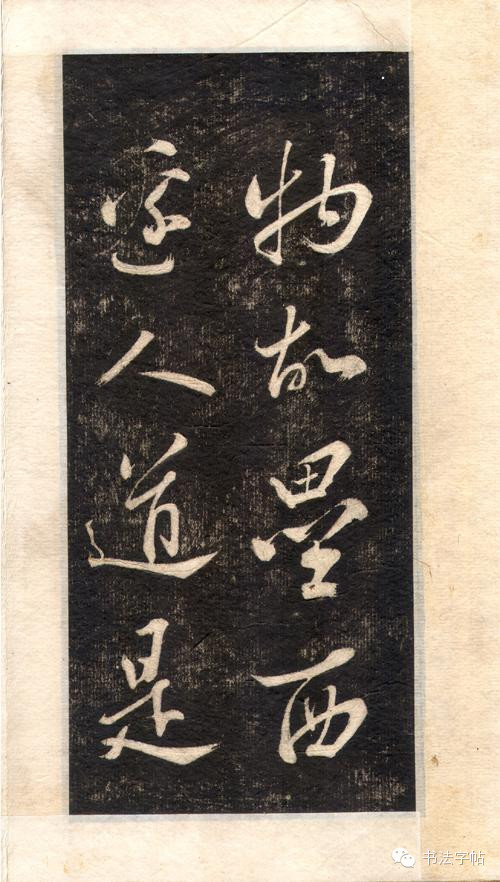 物故壘西
邊人道是
书法字帖